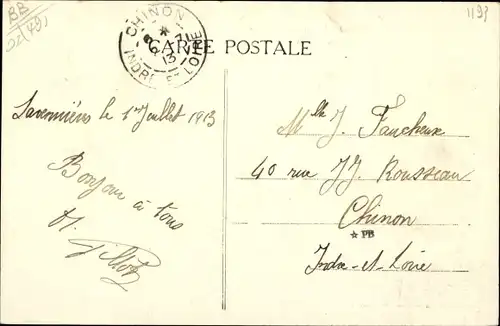 BB
02(49)
1193
CHINON
6-7
13
INDRE ET LOIRE
CARTE POSTALE
Savennières le 1er Juillet 1913
Bonjour à tous
Mlle J. Faucheux
40 rue JJ. Rousseau
Chinon
★ PB
Indre-et-Loire